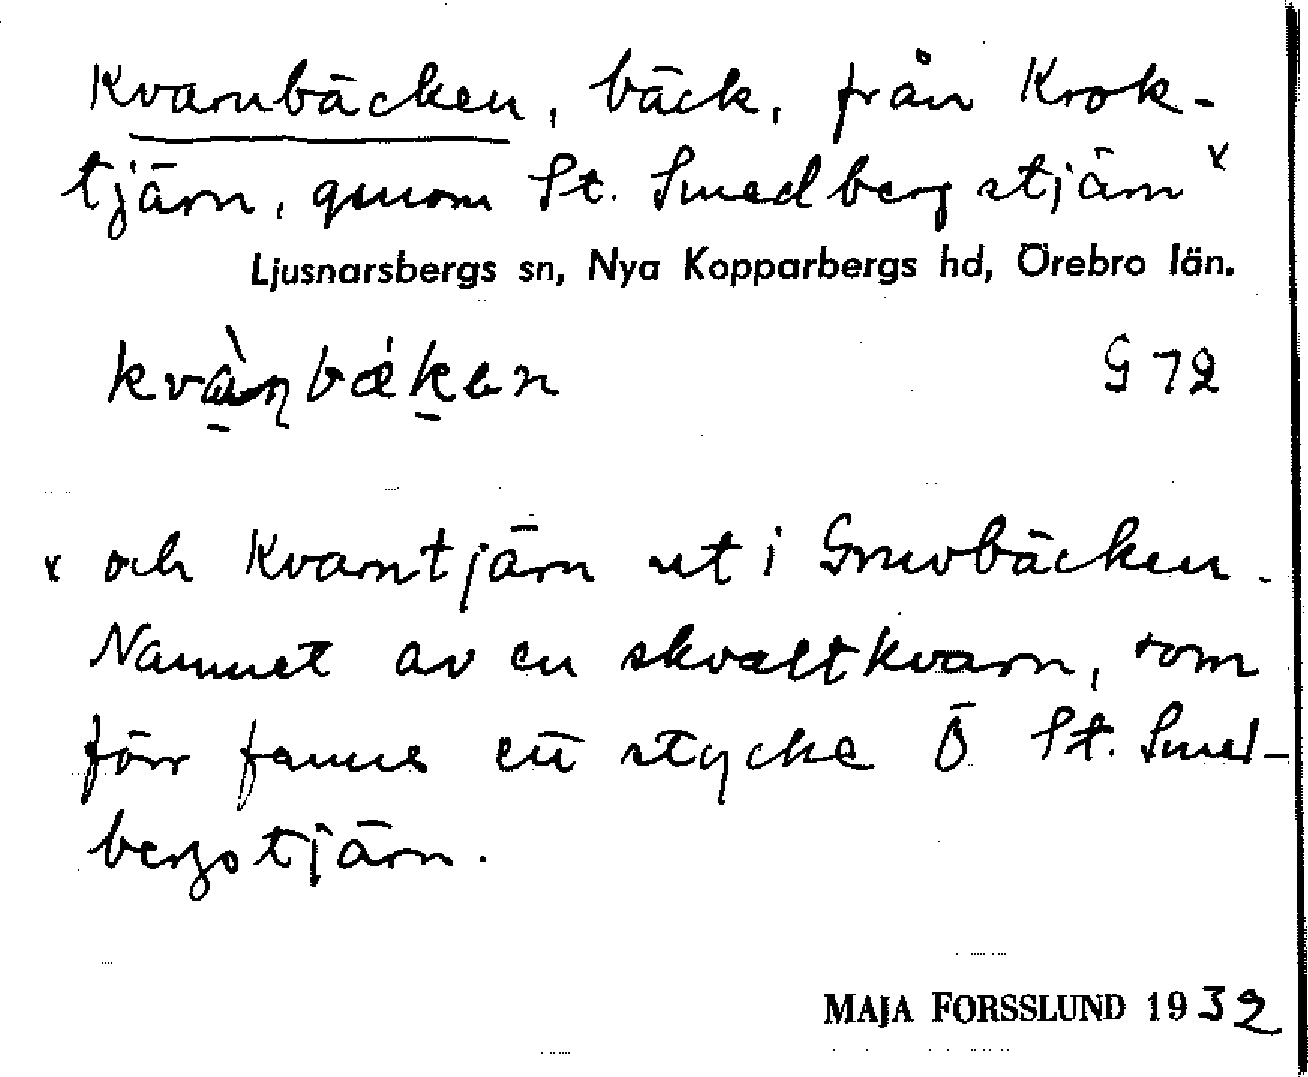 Kvarnbäcken, bäck, från Krok-
tjärn, genom St. Smedbergstjärn x
Ljusnarsbergs sn, Nya Kopparbergs hd, Örebro län.
G 72
x och Kvarntjärn ut i Gruvbäcken.
Namnet av en skvaltkvarn, som
förr fanns ett stycke Ö St. Smed-
bergstjärn.
MAJA FORSSLUND 1932